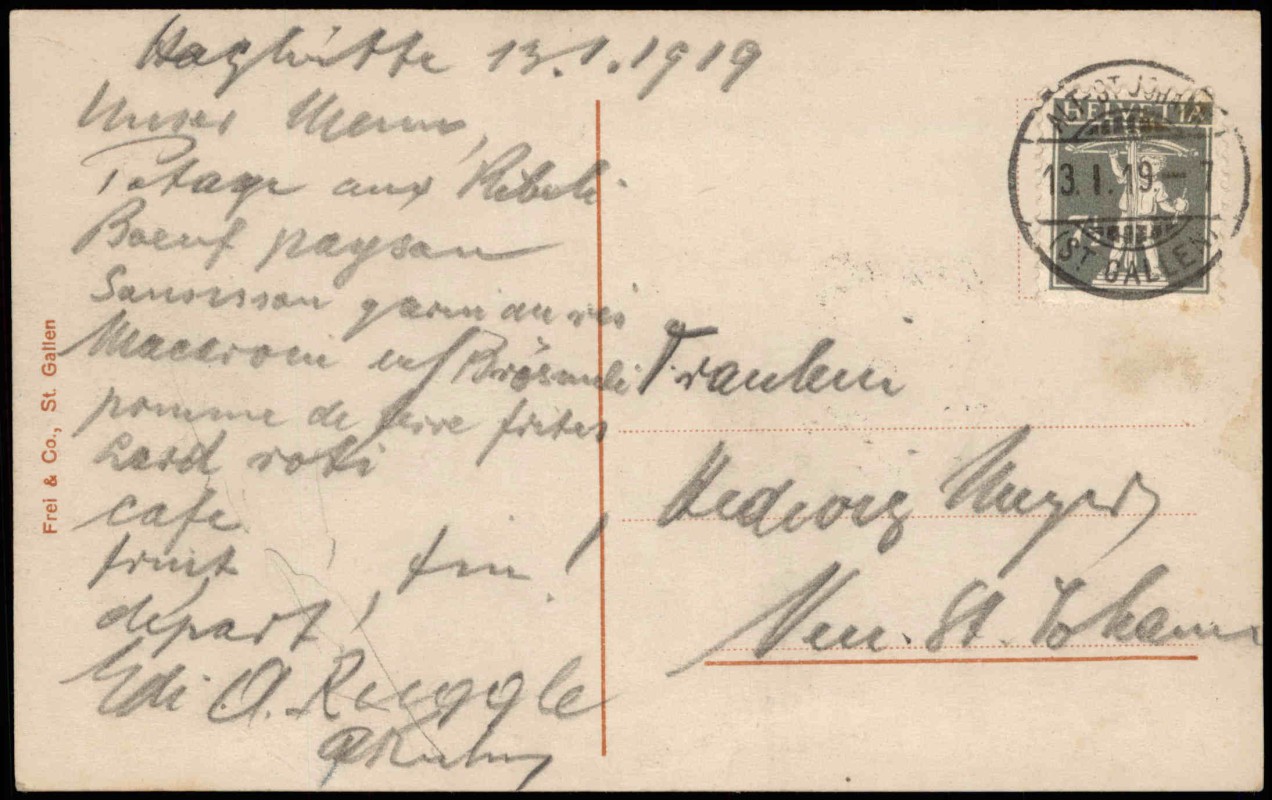 13.1.1919
Unser Menu,
Potage aux Ribeli
Boeuf paysan
Saucisson garni au ris
Macaroni mit Brösmeli
pomme de terre frites
Lard roti
cafe
fruit, fin!
départ!
Edi A. Rüggle
Frei & Co., St. Gallen
ALT-ST. JOHANN
HELVETIA
13.I.19-7
(ST GALLEN)
Fraulein
Hedwig Meyer
Neu-St. Johann